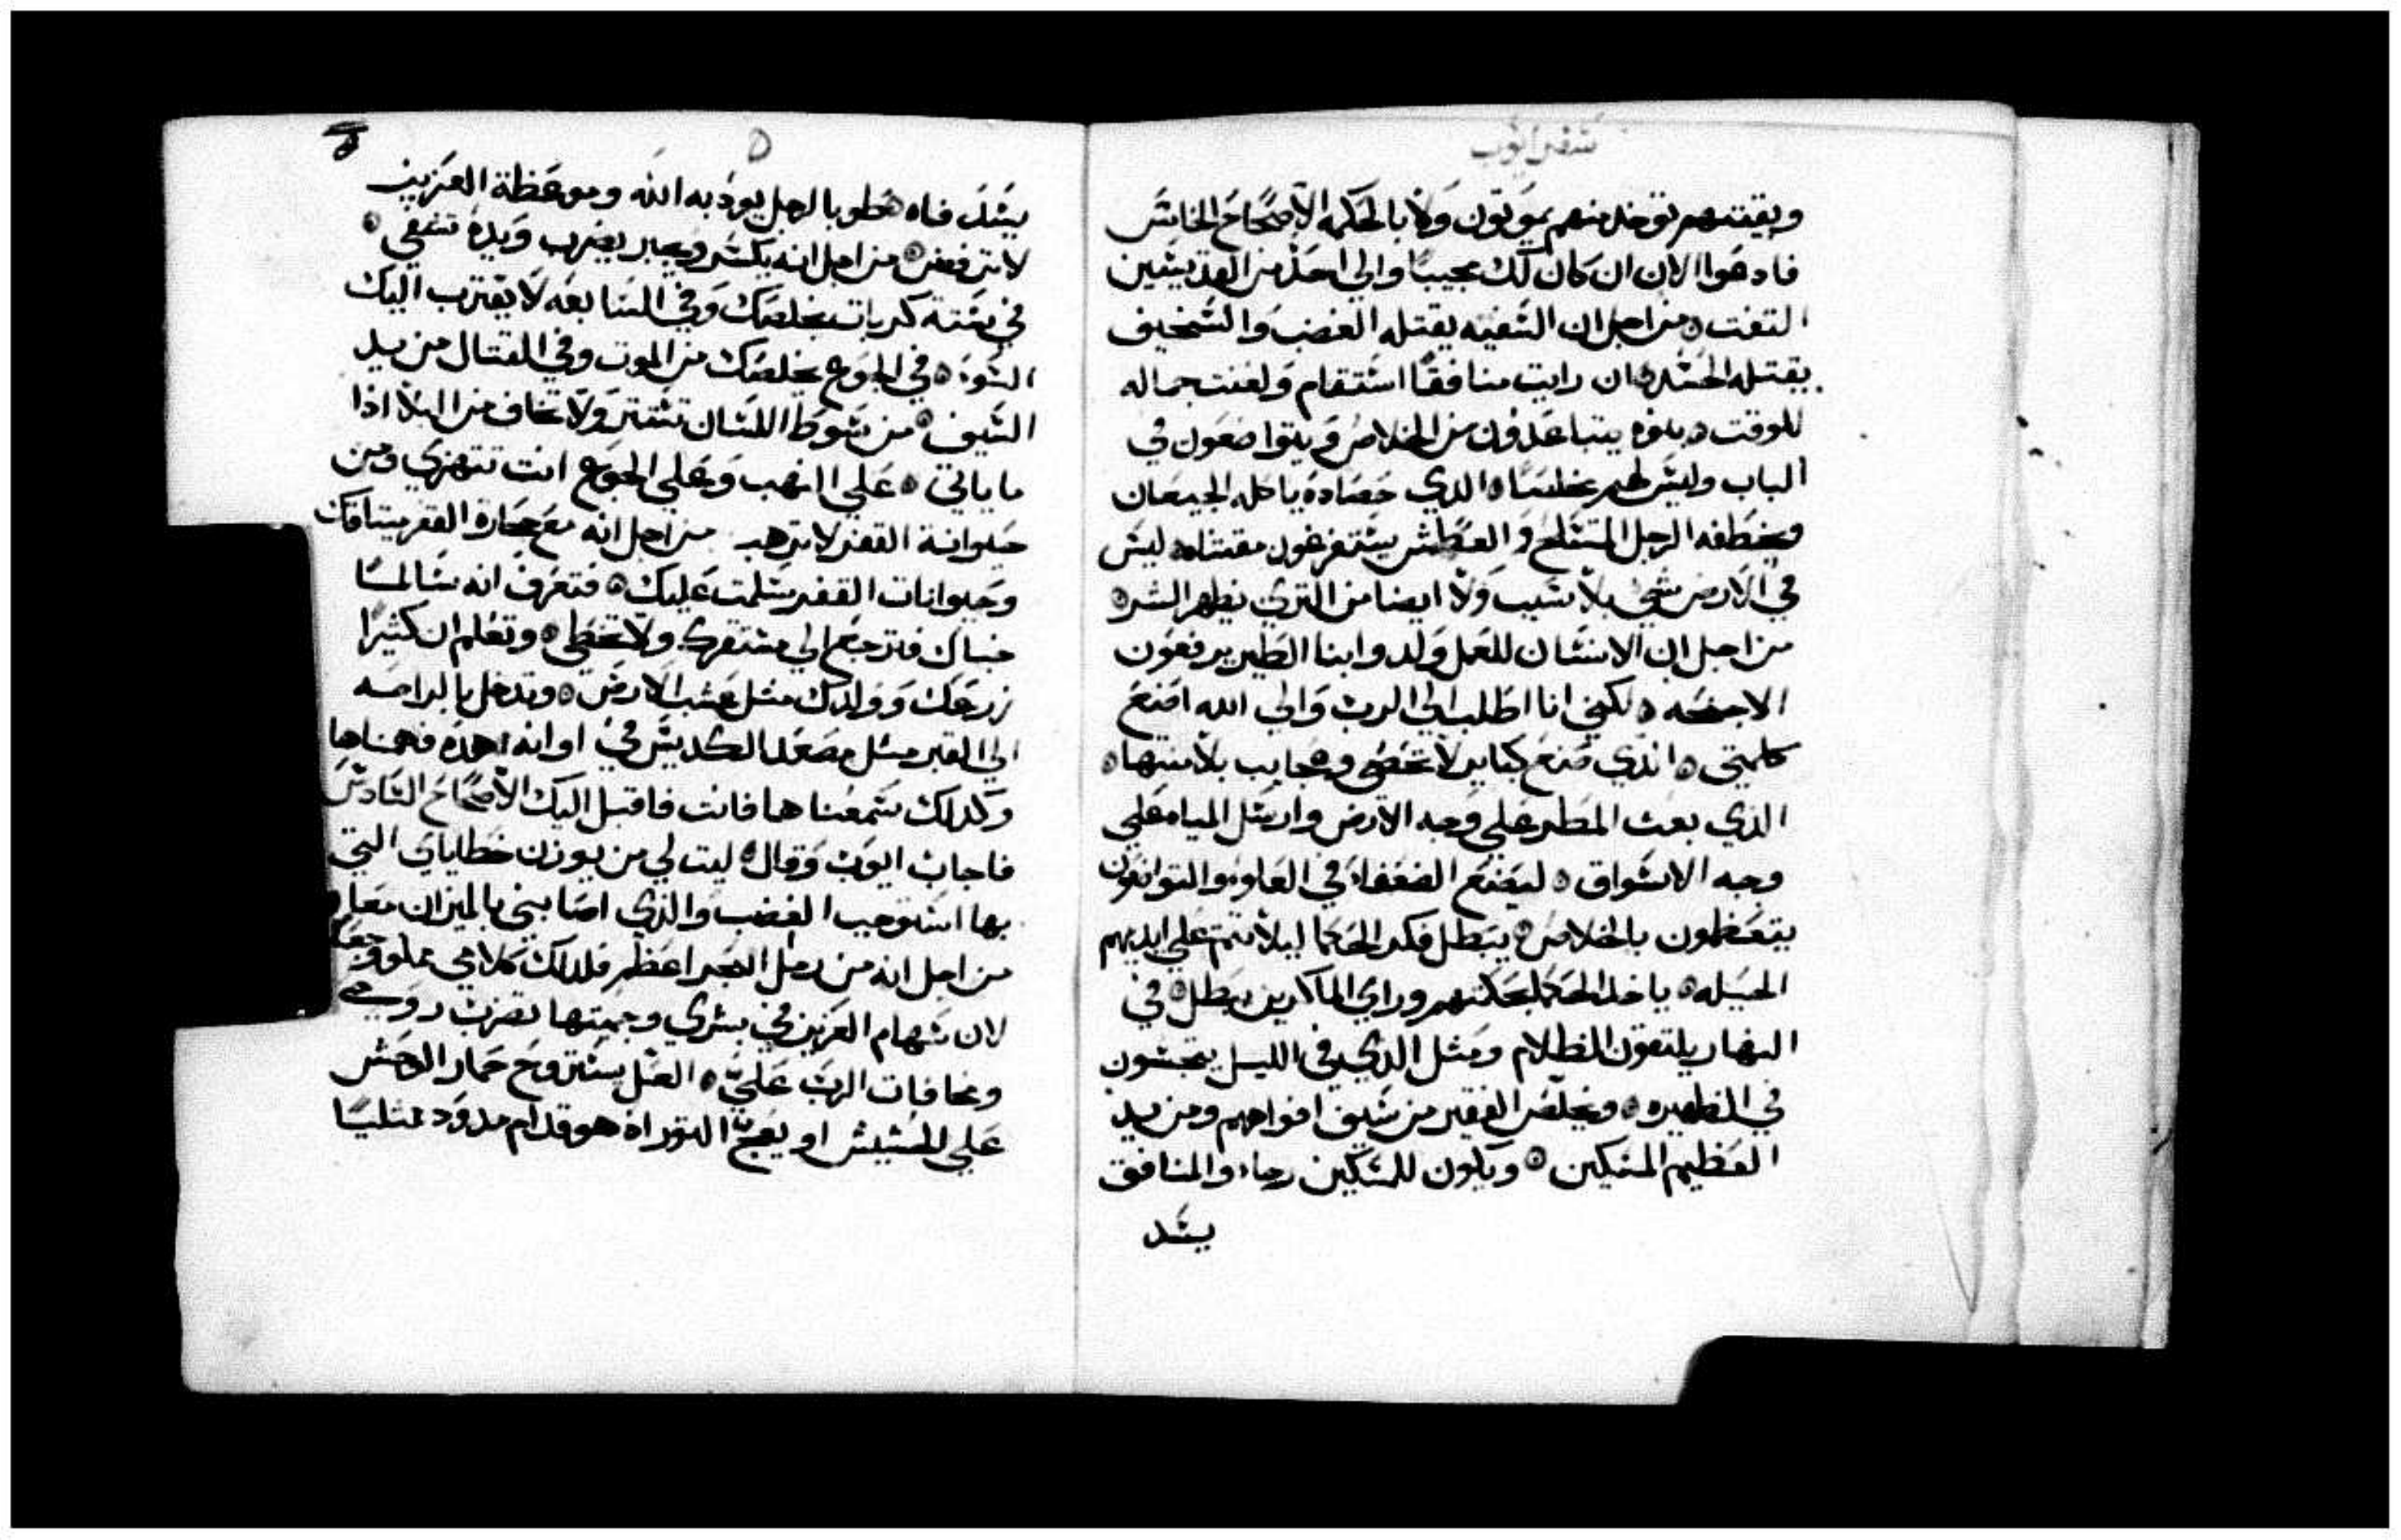 سفر ايوب
وبقيتهم توخد منهم يموتون ولا بالحكمه الاصحاح الخامس
فادعوا الان ان كان لك مجيبا والي احد من القديسين
التفت ۞ من اجل ان السفيه يقتله الغضب والسخيف
يقتله الحسد ۞ ان رايت منافقا استقام ولعنت جماله
للوقت ۞ بنوه يتباعدون من الخلاص ويتواضعون في
الباب وليس لهم مخلصا ۞ الدي حصاده ياكله الجيعان
ويخطفه الرجل المتسلح والعطش يستفرغون مقتناه ۞ ليس
في الارض شي بلا سبب ولا ايضا من التري يظهر الشر ۞
من اجل ان الانسان للعمل ولد وابنا الطير يرفعون
الاجنحه ۞ لكني انا اطلب الي الرب والي الله اضع
كلمتي ۞ الدي صنع كباير لا تحصي وعجايب بلا منتها ۞
الدي بعث المطر علي وجه الارض وارسل المياه علي
وجه الاسواق ۞ ليضع الضعفاء في العلو والتوانقون
يتعظمون بالخلاص ۞ يبطل فكر الحكما ليلا تتم علي ايديهم
الحيله ۞ ياخد الحكما بحكمتهم وراي الماكرين يبطل ۞ في
النهار يلتقون الظلام ومثل الدي في الليل يتجسون
في الظهيره ۞ ويخلص الفقير من سيف افواههم ومن يد
العظيم المسكين ۞ ويكون للمسكين رجاء والمنافق
يسد
٥
يسد فاه طوبا لرجل يودبه الله وموعظة العزيز
لا ترفض ۞ من اجل انه يكسر ويجابر يضرب ويده تشفي ۞
في ستة كربات يخلصك وفي السابعه لا يقترب اليك
السوء ۞ في الجوع يخلصك من الموت وفي القتال من يد
السيف ۞ من سوط اللسان تستتر ولا تخاف من البلا اذا
ما ياتي ۞ علي النهب وعلي الجوع انت تتهزي ومن
حيوانة القفر لا ترهب من اجل انه مع حجارة القفر ميثاقك
وحيوانات القفر سلمت عليك ۞ فتعرف انه سالما
خباك فترجع الي مستقرك ولا تخطي ۞ وتعلم ان كثيرا
زرعك وولدك مثل عشب الارض ۞ وتدخل بالراحه
الي القبر مثل مصعد الكديش في اوانه هده فحصناها
وكدلك سمعناها فانت فاقبل اليك الاصحاح السادس
فاجاب ايوب وقال ۞ ليت لي من يوزن خطاياي التي
بها استوجب الغضب والدي اصابني بالميزان معا ۞
من اجل انه من رمل البحر اعظم فلدلك كلامي مملو وجعا
لان سهام العزيز في بشري وحميتها تضرب روحي
ومخافات الرب علي ۞ العل يستروح حمار الوحش
علي الحشيش او يعج التور اذ هو قدام مدود ممتليا